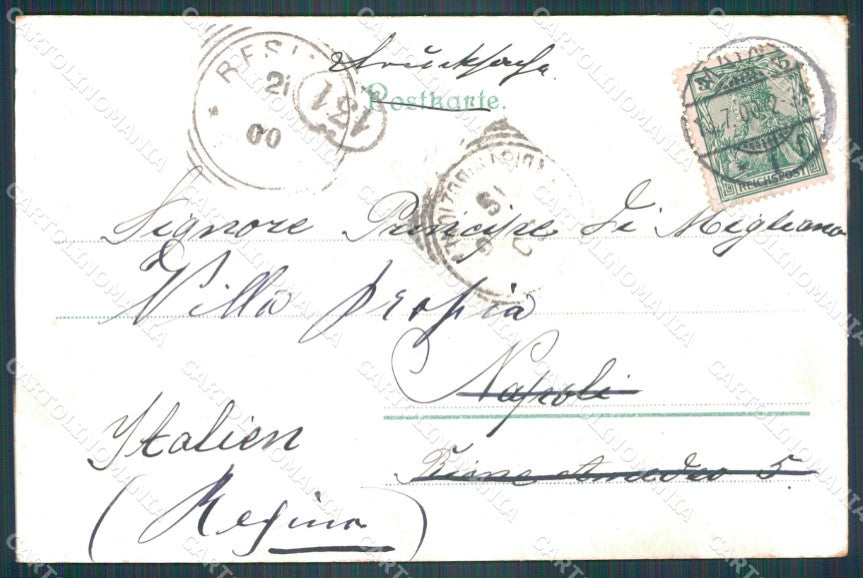 Drucksache.
Postkarte.
RESI
21
00
131
REICHSPOST
Signore Principe di Migliano
Villa propia
Napoli
Italien
Amedeo 5.
(Resina)
CARTOLINOMANIA